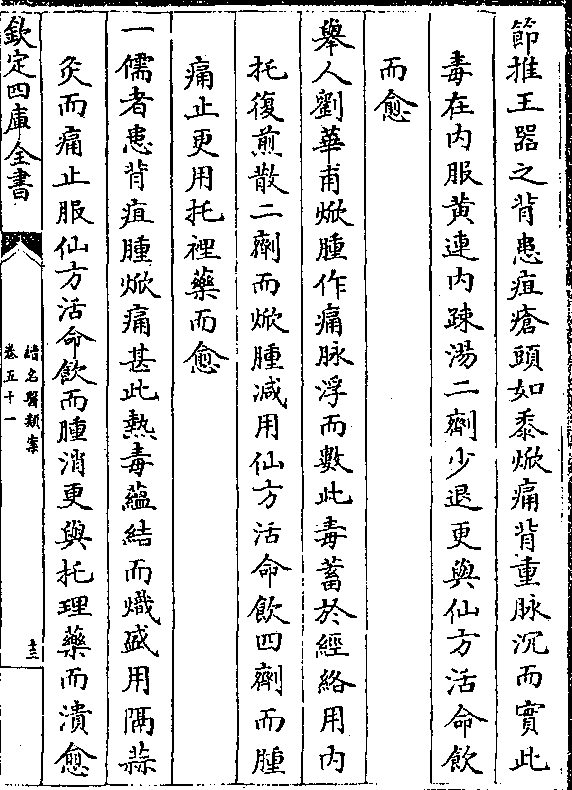 節推王器之背患疽瘡頭如黍焮痛背重脉沉而實此
毒在内服黄連内疎湯二劑少退更與仙方活命飲
而愈
舉人劉華甫焮腫作痛脉浮而數此毒蓄於經絡用内
托復煎散二劑而焮腫減用仙方活命飲四劑而腫
痛止更用托裡藥而愈
一儒者患背疽腫焮痛甚此熱毒藴結而熾盛用隔蒜
灸而痛止服仙方活命飲而腫消更與托理藥而潰愈
欽定四庫全書
名醫類案
卷五十一